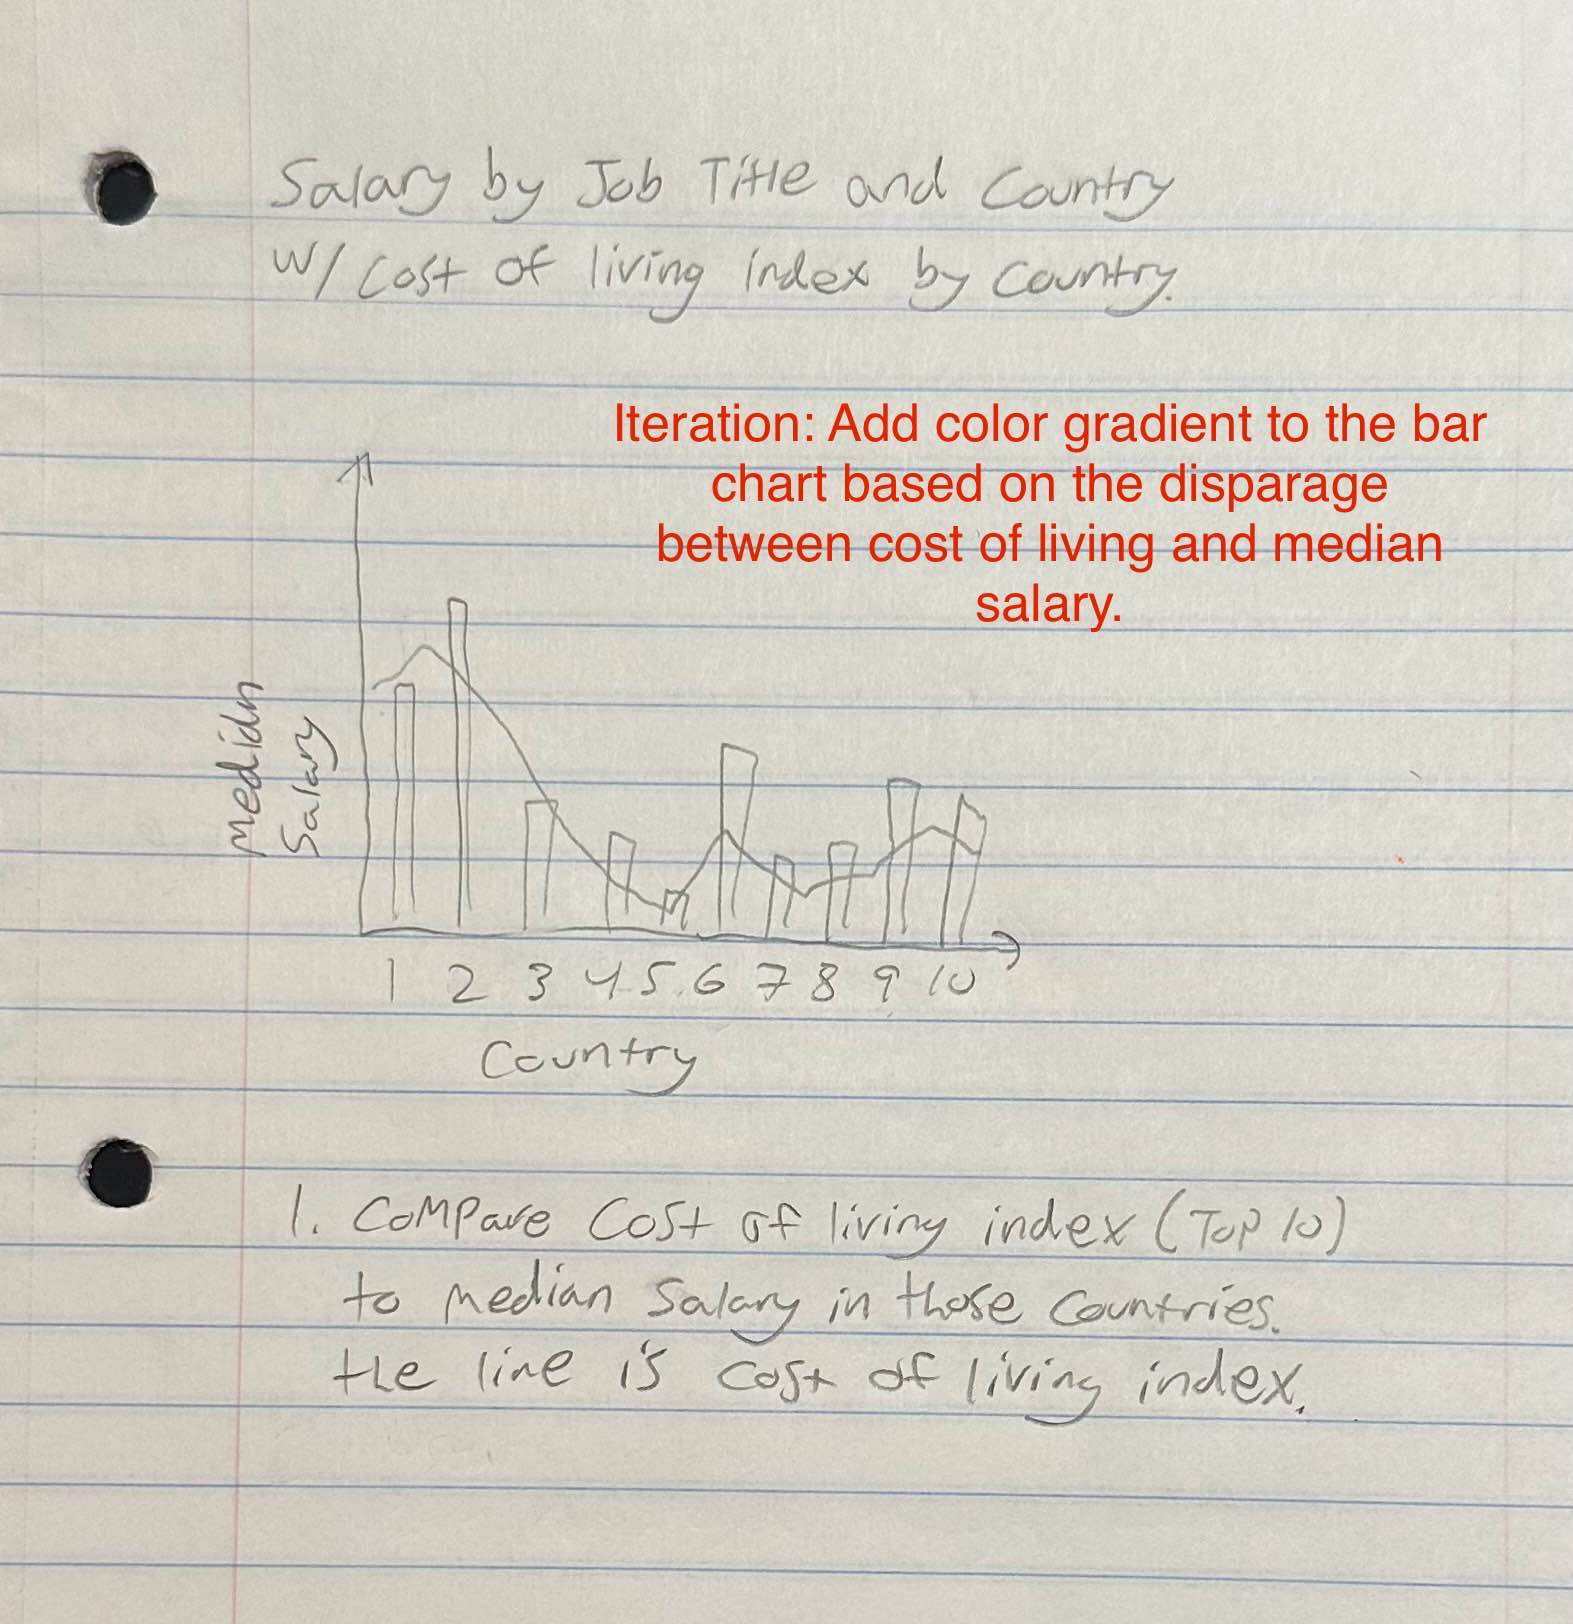 Salary by Job Title and Country
w/ Cost of living index by Country.
Iteration: Add color gradient to the bar
chart based on the disparage
between cost of living and median
salary.
Median
Salary
1 2 3 4 5 6 7 8 9 10
Country
1. Compare Cost of living index (Top 10)
to median Salary in those Countries.
the line is Cost of living index.